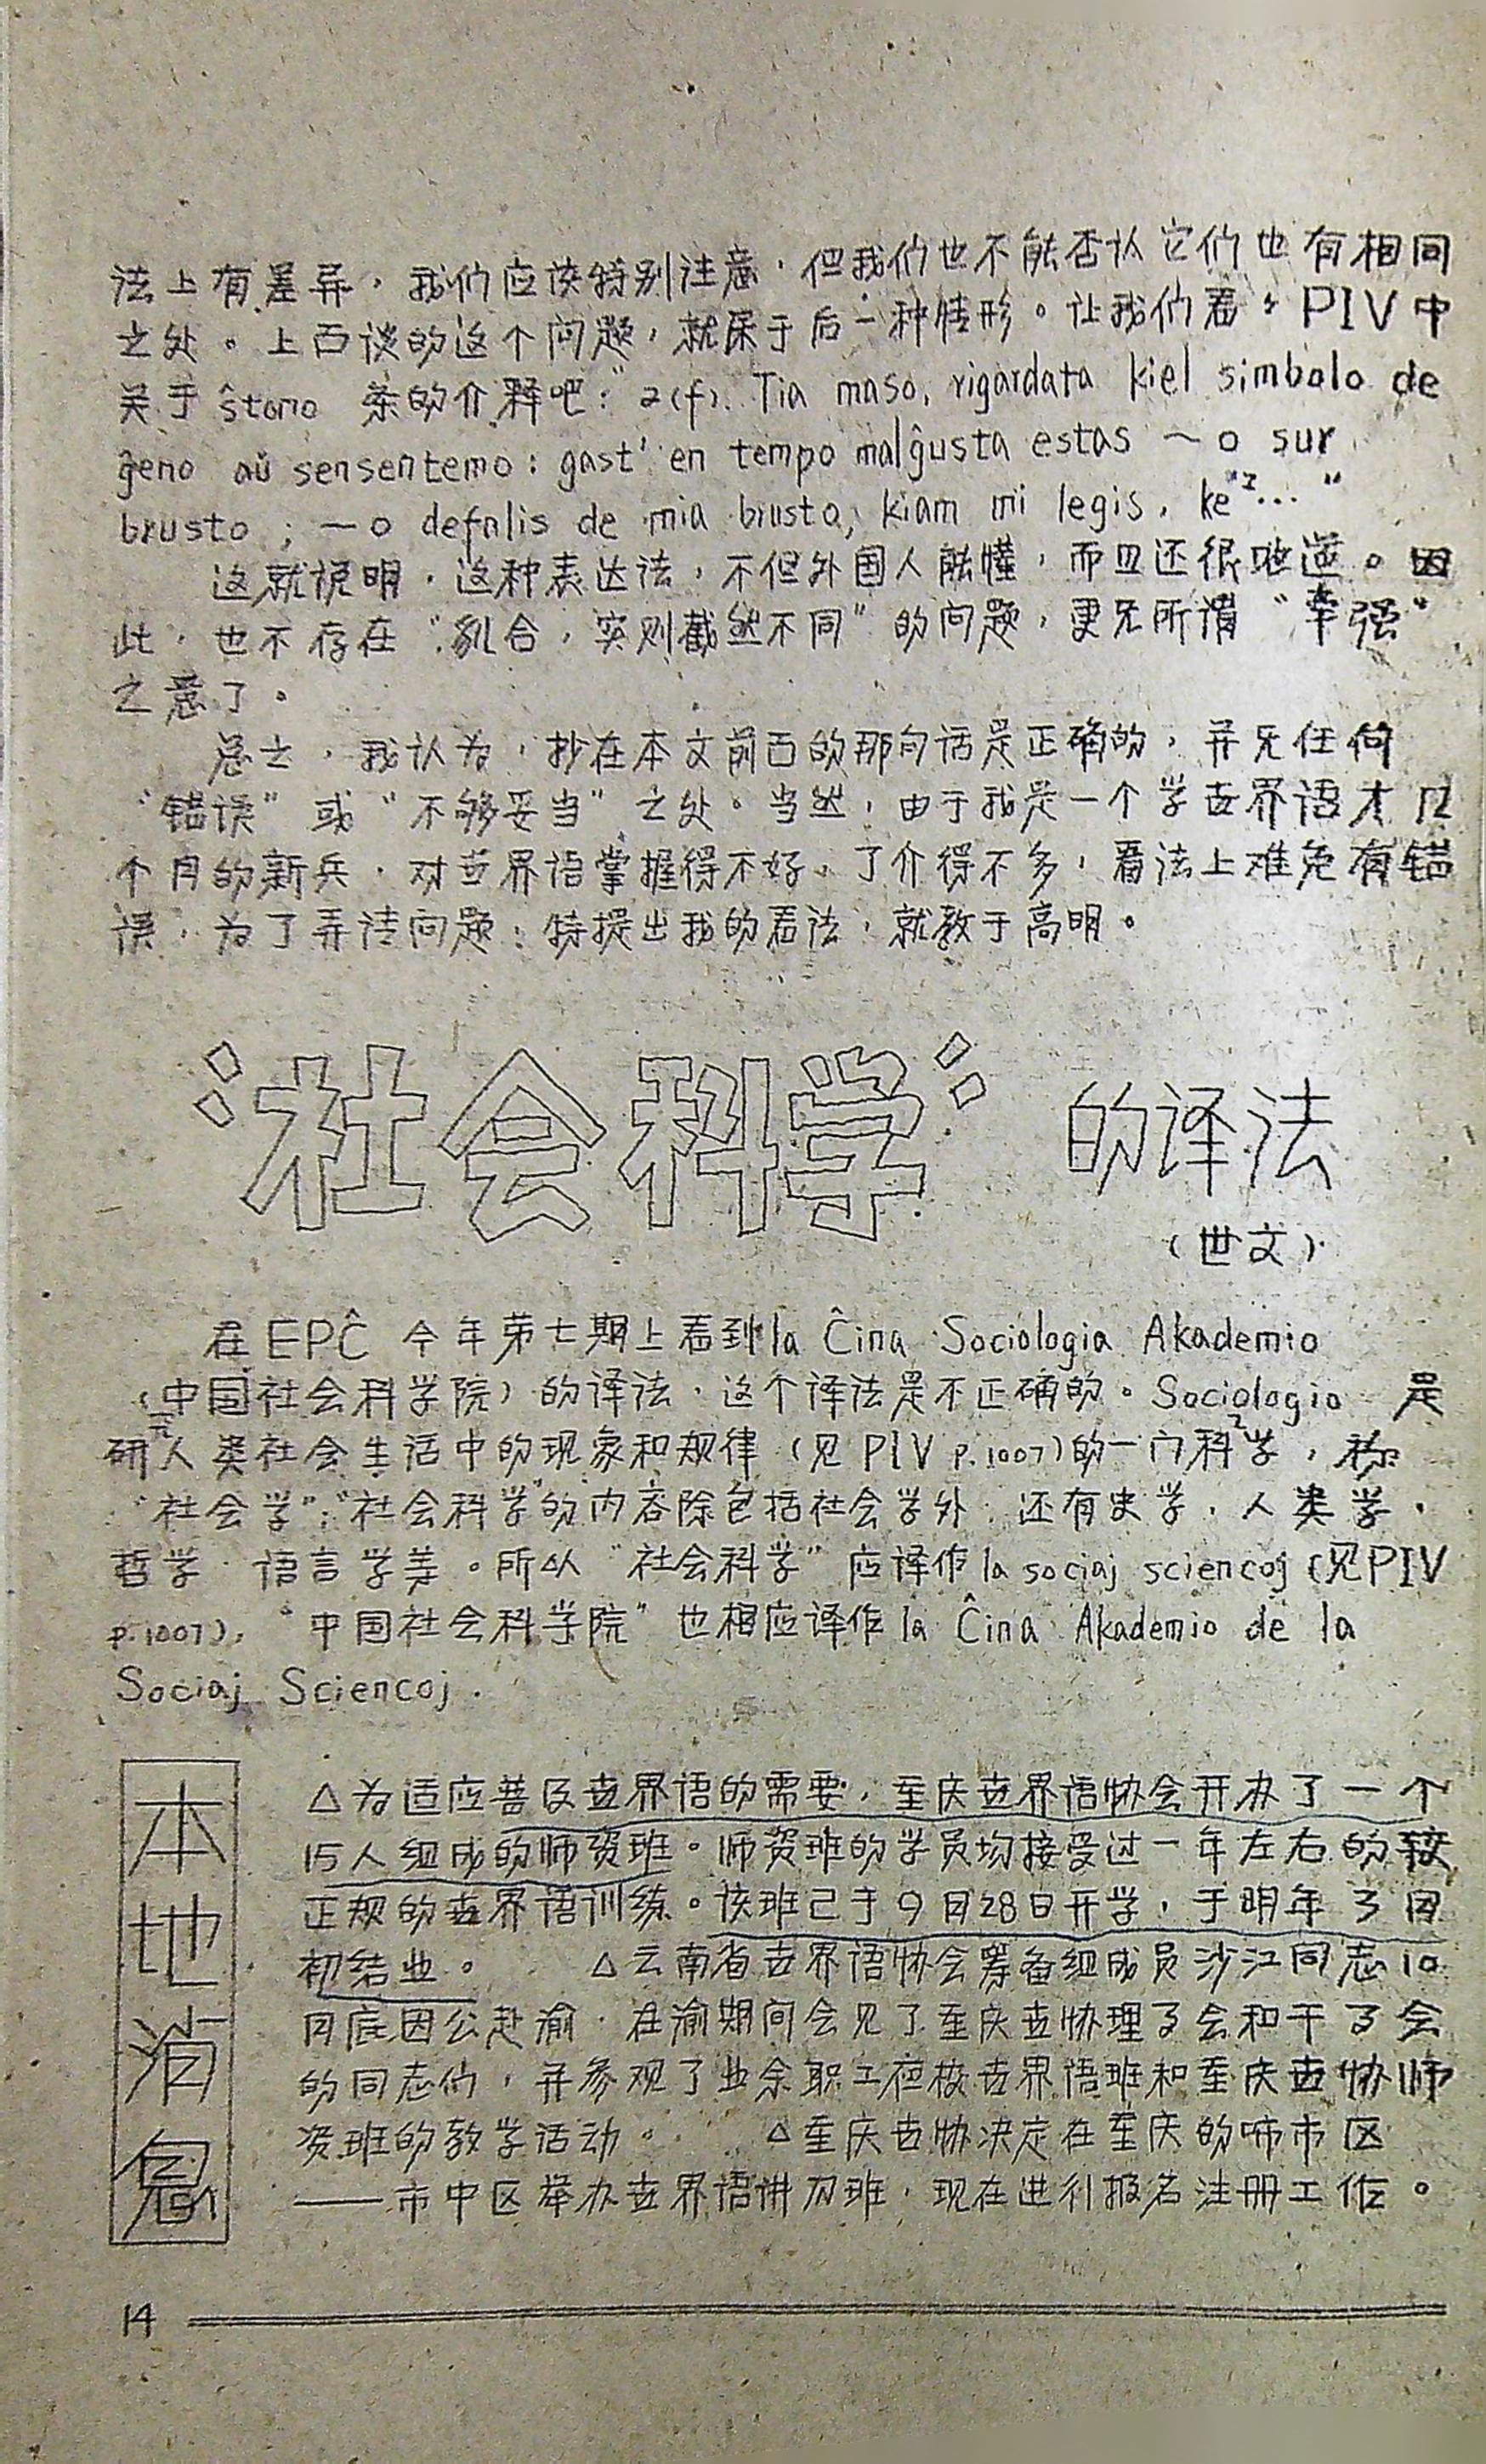 法上有差异，我们应该特别注意，但我们也不能否认它们也有相同
之处。上面谈的这个问题，就属于后一种情形。让我们看看 PIV 中
关于 ŝtono 条的介释吧：“2(f). Tia maso, rigardata kiel simbolo de
ĝeno aŭ sensentemo: gast' en tempo malĝusta estas ～o sur
brusto ; ～o defalis de mia brusto, kiam mi legis, ke ...”
这就说明，这种表达法，不但外国人能懂，而且还很地道。因
此，也不存在“乱合，实则截然不同”的问题，更无所谓“牵强”
之意了。
总之，我认为，抄在本文前面的那句话是正确的，并无任何
“错误”或“不够妥当”之处。当然，由于我是一个学世界语才几
个月的新兵，对世界语掌握得不好，了介得不多，看法上难免有错
误，为了弄清问题，特提出我的看法，就教于高明。
“社会科学”的译法
（世文）
在 EPĈ 今年第七期上看到 la Ĉina Sociologia Akademio
（中国社会科学院）的译法，这个译法是不正确的。Sociologio 是
研究人类社会生活中的现象和规律（见 PIV p.1007）的一门科学，称
“社会学”；“社会科学”的内容除包括社会学外，还有史学，人类学，
哲学，语言学等。所以“社会科学”应译作 la sociaj sciencoj（见 PIV
p.1007），“中国社会科学院”也相应译作 la Ĉina Akademio de la
Sociaj Sciencoj.
本地消息
△为适应普及世界语的需要，重庆世界语协会开办了一个
15人组成的师资班。师资班的学员均接受过一年左右的较
正规的世界语训练。该班已于9月28日开学，于明年3月
初结业。 △云南省世界语协会筹备组成员沙江同志10
月底因公赴渝，在渝期间会见了重庆世协理事会和干事会
的同志们，并参观了业余职工夜校世界语班和重庆世协师
资班的教学活动。 △重庆世协决定在重庆的市区
——市中区举办世界语讲习班，现在进行报名注册工作。
14